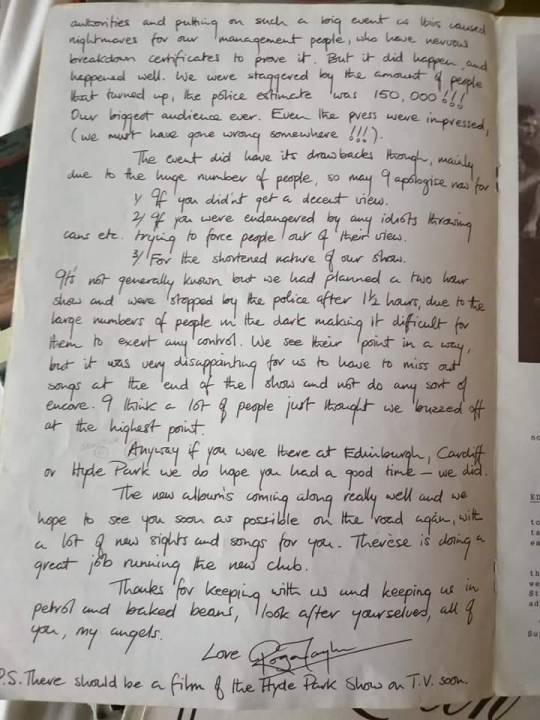 authorities and putting on such a big event as this caused
nightmares for our management people, who have nervous
breakdown certificates to prove it. But it did happen, and
happened well. We were staggered by the amount of people
that turned up, the police estimate was 150,000 !!!
Our biggest audience ever. Even the press were impressed,
(we must have gone wrong somewhere !!!).
The event did have its drawbacks though, mainly
due to the huge number of people, so may I apologise now for
1/ If you did'nt get a decent view.
2/ If you were endangered by any idiots throwing
cans etc. trying to force people out of their view.
3/ For the shortened nature of our show.
It's not generally known but we had planned a two hour
show and were stopped by the police after 1½ hours, due to the
large numbers of people in the dark making it difficult for
them to exert any control. We see their point in a way,
but it was very disappointing for us to have to miss out
songs at the end of the show and not do any sort of
encore. I think a lot of people just thought we buzzed off
at the highest point.
Anyway if you were there at Edinburgh, Cardiff
or Hyde Park we do hope you had a good time – we did.
The new album's coming along really well and we
hope to see you soon as possible on the road again, with
a lot of new sights and songs for you. Therese is doing a
great job running the new club.
Thanks for keeping with us and keeping us in
petrol and baked beans, look after yourselves, all of
you, my angels.
Love Roger Taylor
P.S. There should be a film of the Hyde Park Show on T.V. soon.